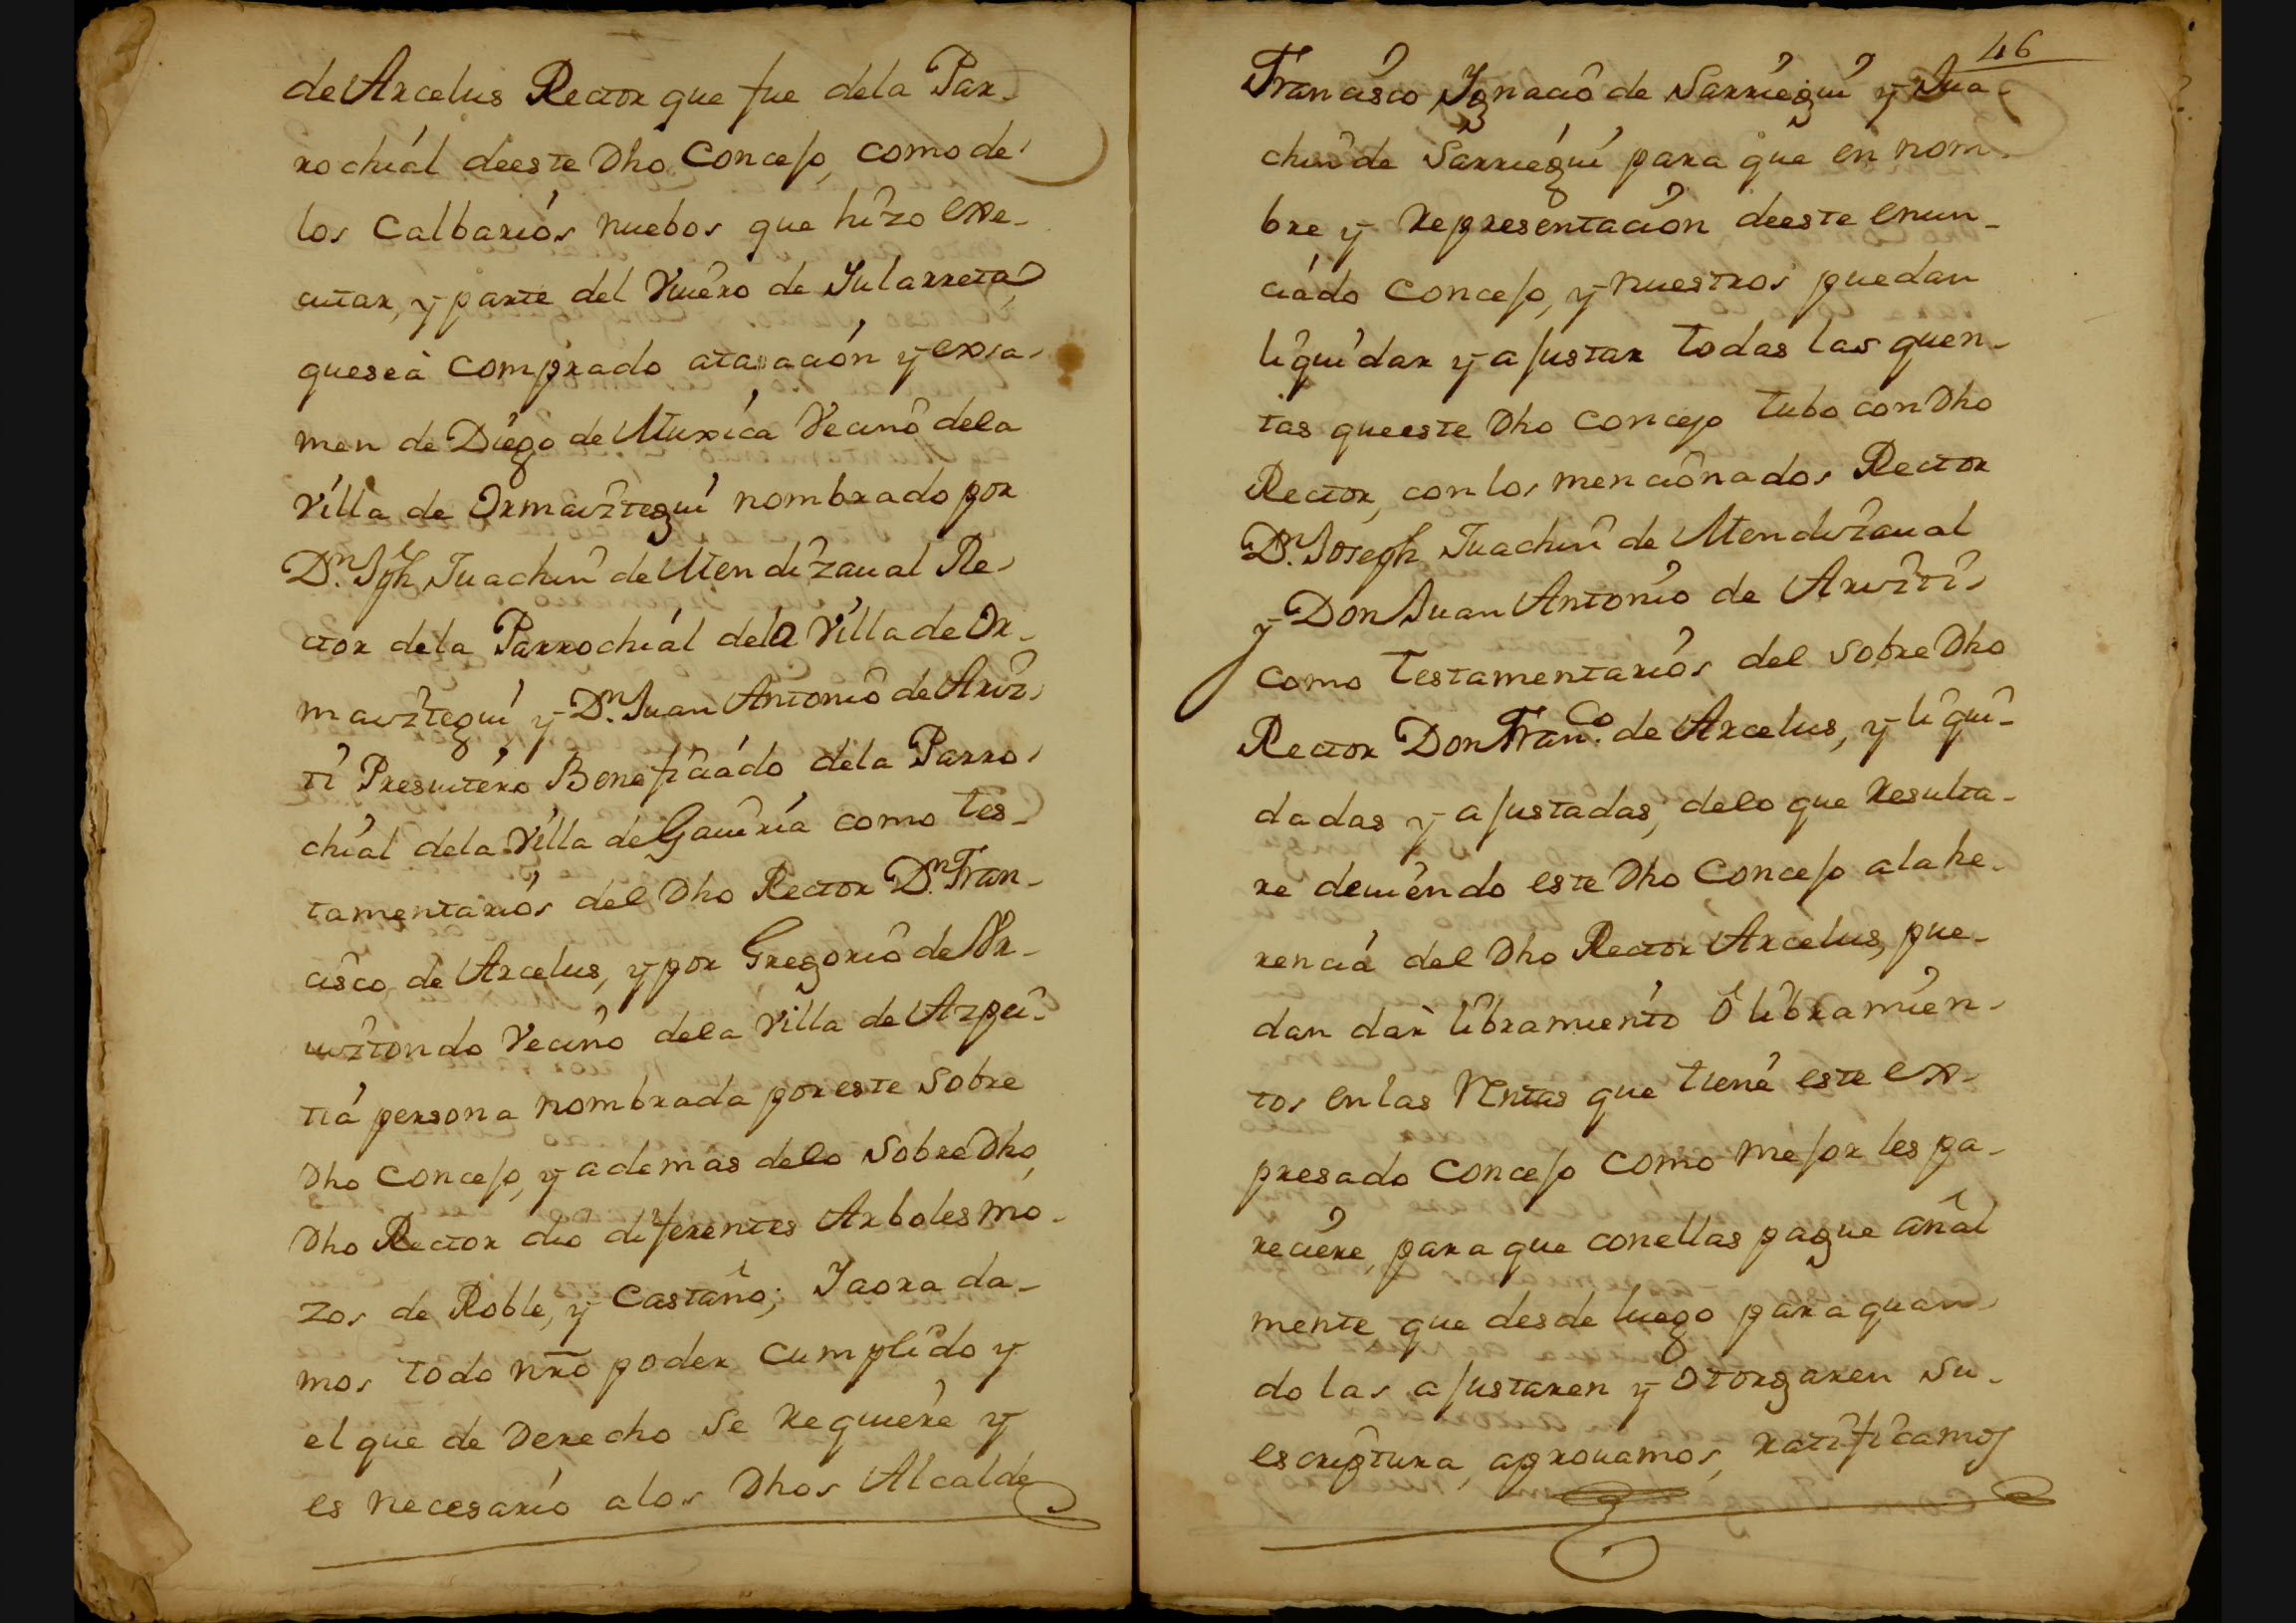 de Arcelus Rector que fue dela Par-
rochial deeste Dho Concejo, como de
los Calbarios nuebos que hizo exe-
cutar, y parte del Viuero de Jularreta
quesea comprado atasación y exsa-
men de Diego de Muxica Vecino dela
Villa de Ormaiztegui nombrado por
Dn. Jph Juachin de Mendizaual Re-
ctor dela Parrochial dela Villa de Or-
maiztegui y Dn. Juan Antonio de Ariz-
ti Presuitero Beneficiado dela Parro-
chial dela Villa de Gauiria como tes-
tamentarios del Dho Rector Dn. Fran-
cisco de Arcelus, y por Gregorio de Vr-
uiztondo Vecino dela Villa de Azpei-
tia persona nombrada por este Sobre
Dho Concejo, y ademas delo Sobre Dho,
Dho Rector dio diferentes Arboles mo-
zos de Roble, y Castaño; Jaora da-
mos todo nro poder Cumplido y
el que de Derecho se requiere y
es necesario alos Dhos Alcalde
46
Francisco Ygnacio de Sarriegui y Jua-
chin de Sarriegui para que en nom-
bre y representacion deeste enun-
ciado Concejo, y nuestros puedan
liquidar y ajustar todas las quen-
tas queeste Dho Concejo tubo con Dho
Rector, con los mencionados Rector
Dn. Joseph Juachin de Mendizaual
y Don Juan Antonio de Arizti
como testamentarios del sobre Dho
Rector Don Franco. de Arcelus, y liqui-
dadas y ajustadas, delo que resulta-
re deuiendo este Dho Concejo ala he-
rencia del Dho Rector Arcelus, pue-
dan dar libramiento ô libramien-
tos en las Rentas que tiene este ex-
presado Concejo como mejor les pa-
reciere, para que con ellas pague añal
mente, que desde luego para quan-
do las ajustaren y otorgaren su
escriptura, aprouamos, ratificamos